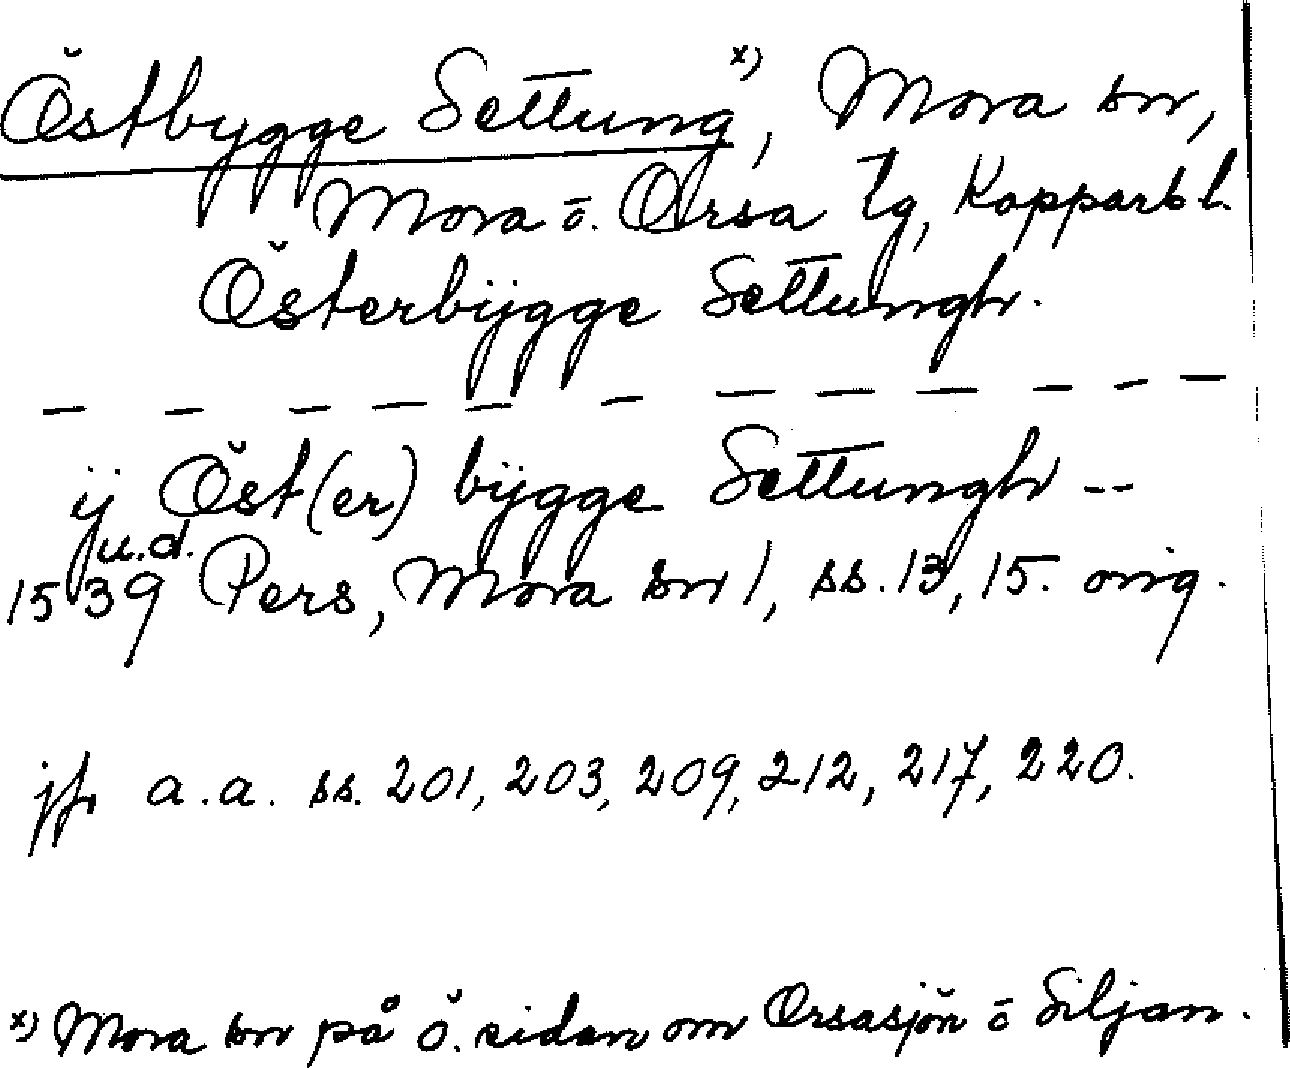 Östbygge Settung x), Mora sn,
Mora o. Orsa tg, Kopparb l.
Österbÿgge Settungh.
— — — — — — — — — — —
ÿ Öst(er) bÿgge Settungh --
1539 u.d. Pers, Mora sn 1, ss. 13, 15. orig.
jfr a.a. ss. 201, 203, 209, 212, 217, 220.
x) Mora sn på ö. sidan om Orsasjön o Siljan.